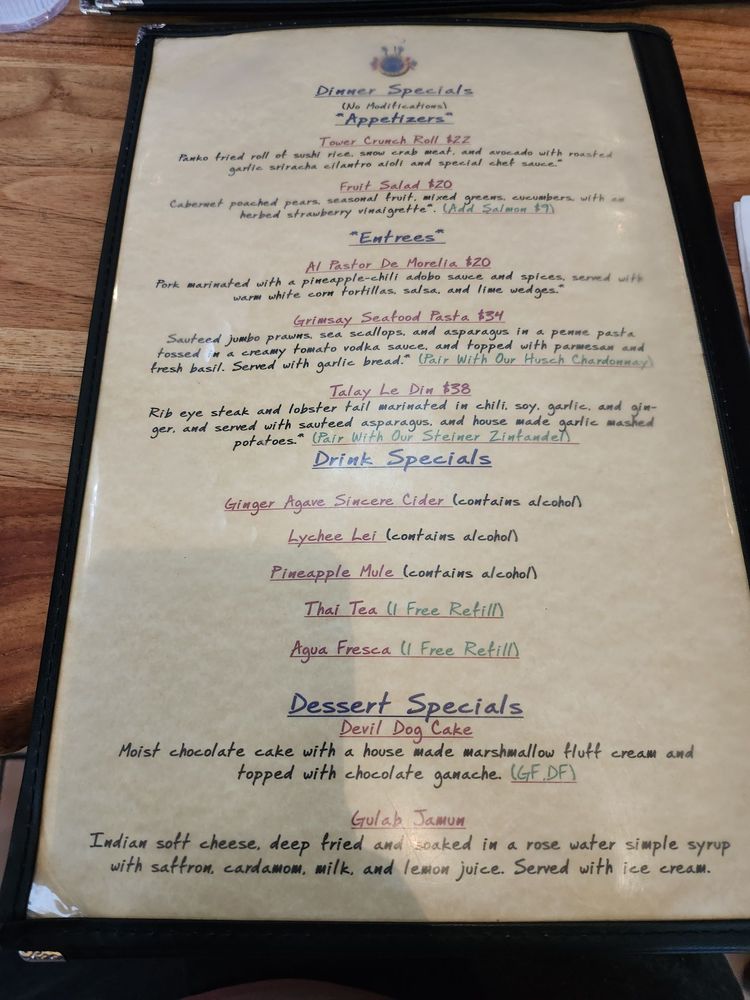 Dinner Specials
(No Modifications)
"Appetizers"
Tower Crunch Roll $22
Panko fried roll of sushi rice, snow crab meat, and avocado with roasted
garlic sriracha cilantro aioli and special chef sauce.*
Fruit Salad $20
Cabernet poached pears, seasonal fruit, mixed greens, cucumbers, with an
herbed strawberry vinaigrette*. (Add Salmon $9)
"Entrees"
Al Pastor De Morelia $20
Pork marinated with a pineapple-chili adobo sauce and spices, served with
warm white corn tortillas, salsa, and lime wedges.*
Grimsay Seafood Pasta $34
Sauteed jumbo prawns, sea scallops, and asparagus in a penne pasta
tossed in a creamy tomato vodka sauce, and topped with parmesan and
fresh basil. Served with garlic bread.* (Pair With Our Husch Chardonnay)
Talay Le Din $38
Rib eye steak and lobster tail marinated in chili, soy, garlic, and gin-
ger, and served with sauteed asparagus, and house made garlic mashed
potatoes.* (Pair With Our Steiner Zinfandel)
Drink Specials
Ginger Agave Sincere Cider (contains alcohol)
Lychee Lei (contains alcohol)
Pineapple Mule (contains alcohol)
Thai Tea (1 Free Refill)
Agua Fresca (1 Free Refill)
Dessert Specials
Devil Dog Cake
Moist chocolate cake with a house made marshmallow fluff cream and
topped with chocolate ganache. (GF,DF)
Gulab Jamun
Indian soft cheese, deep fried and soaked in a rose water simple syrup
with saffron, cardamom, milk, and lemon juice. Served with ice cream.